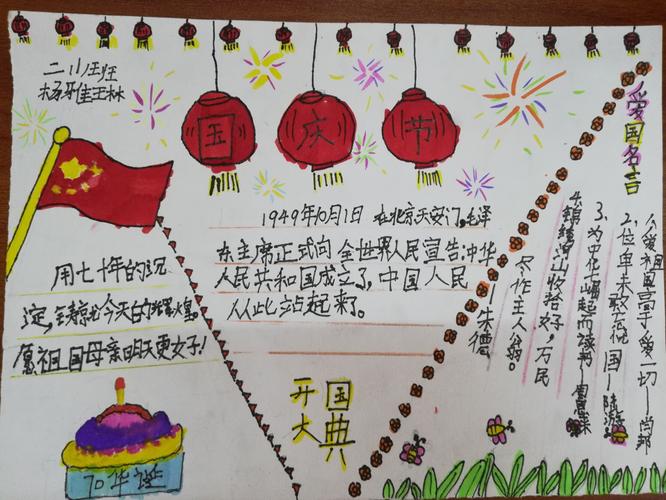 二.11班
杨雅琳
国庆节
用七十年的沉
淀,铸就今天的辉煌。
愿祖国母亲明天更好!
70华诞
1949年10月1日 在北京天安门,毛泽
东主席正式向全世界人民宣告:中华
人民共和国成立了,中国人民
从此站起来了。
开国
大典
爱国名言
1.爱祖国高于爱一切——肖邦
2.位卑未敢忘忧国——陆游
3.为中华崛起而读书——周恩来
4.锦绣河山收拾好,万民
尽作主人翁。——朱德